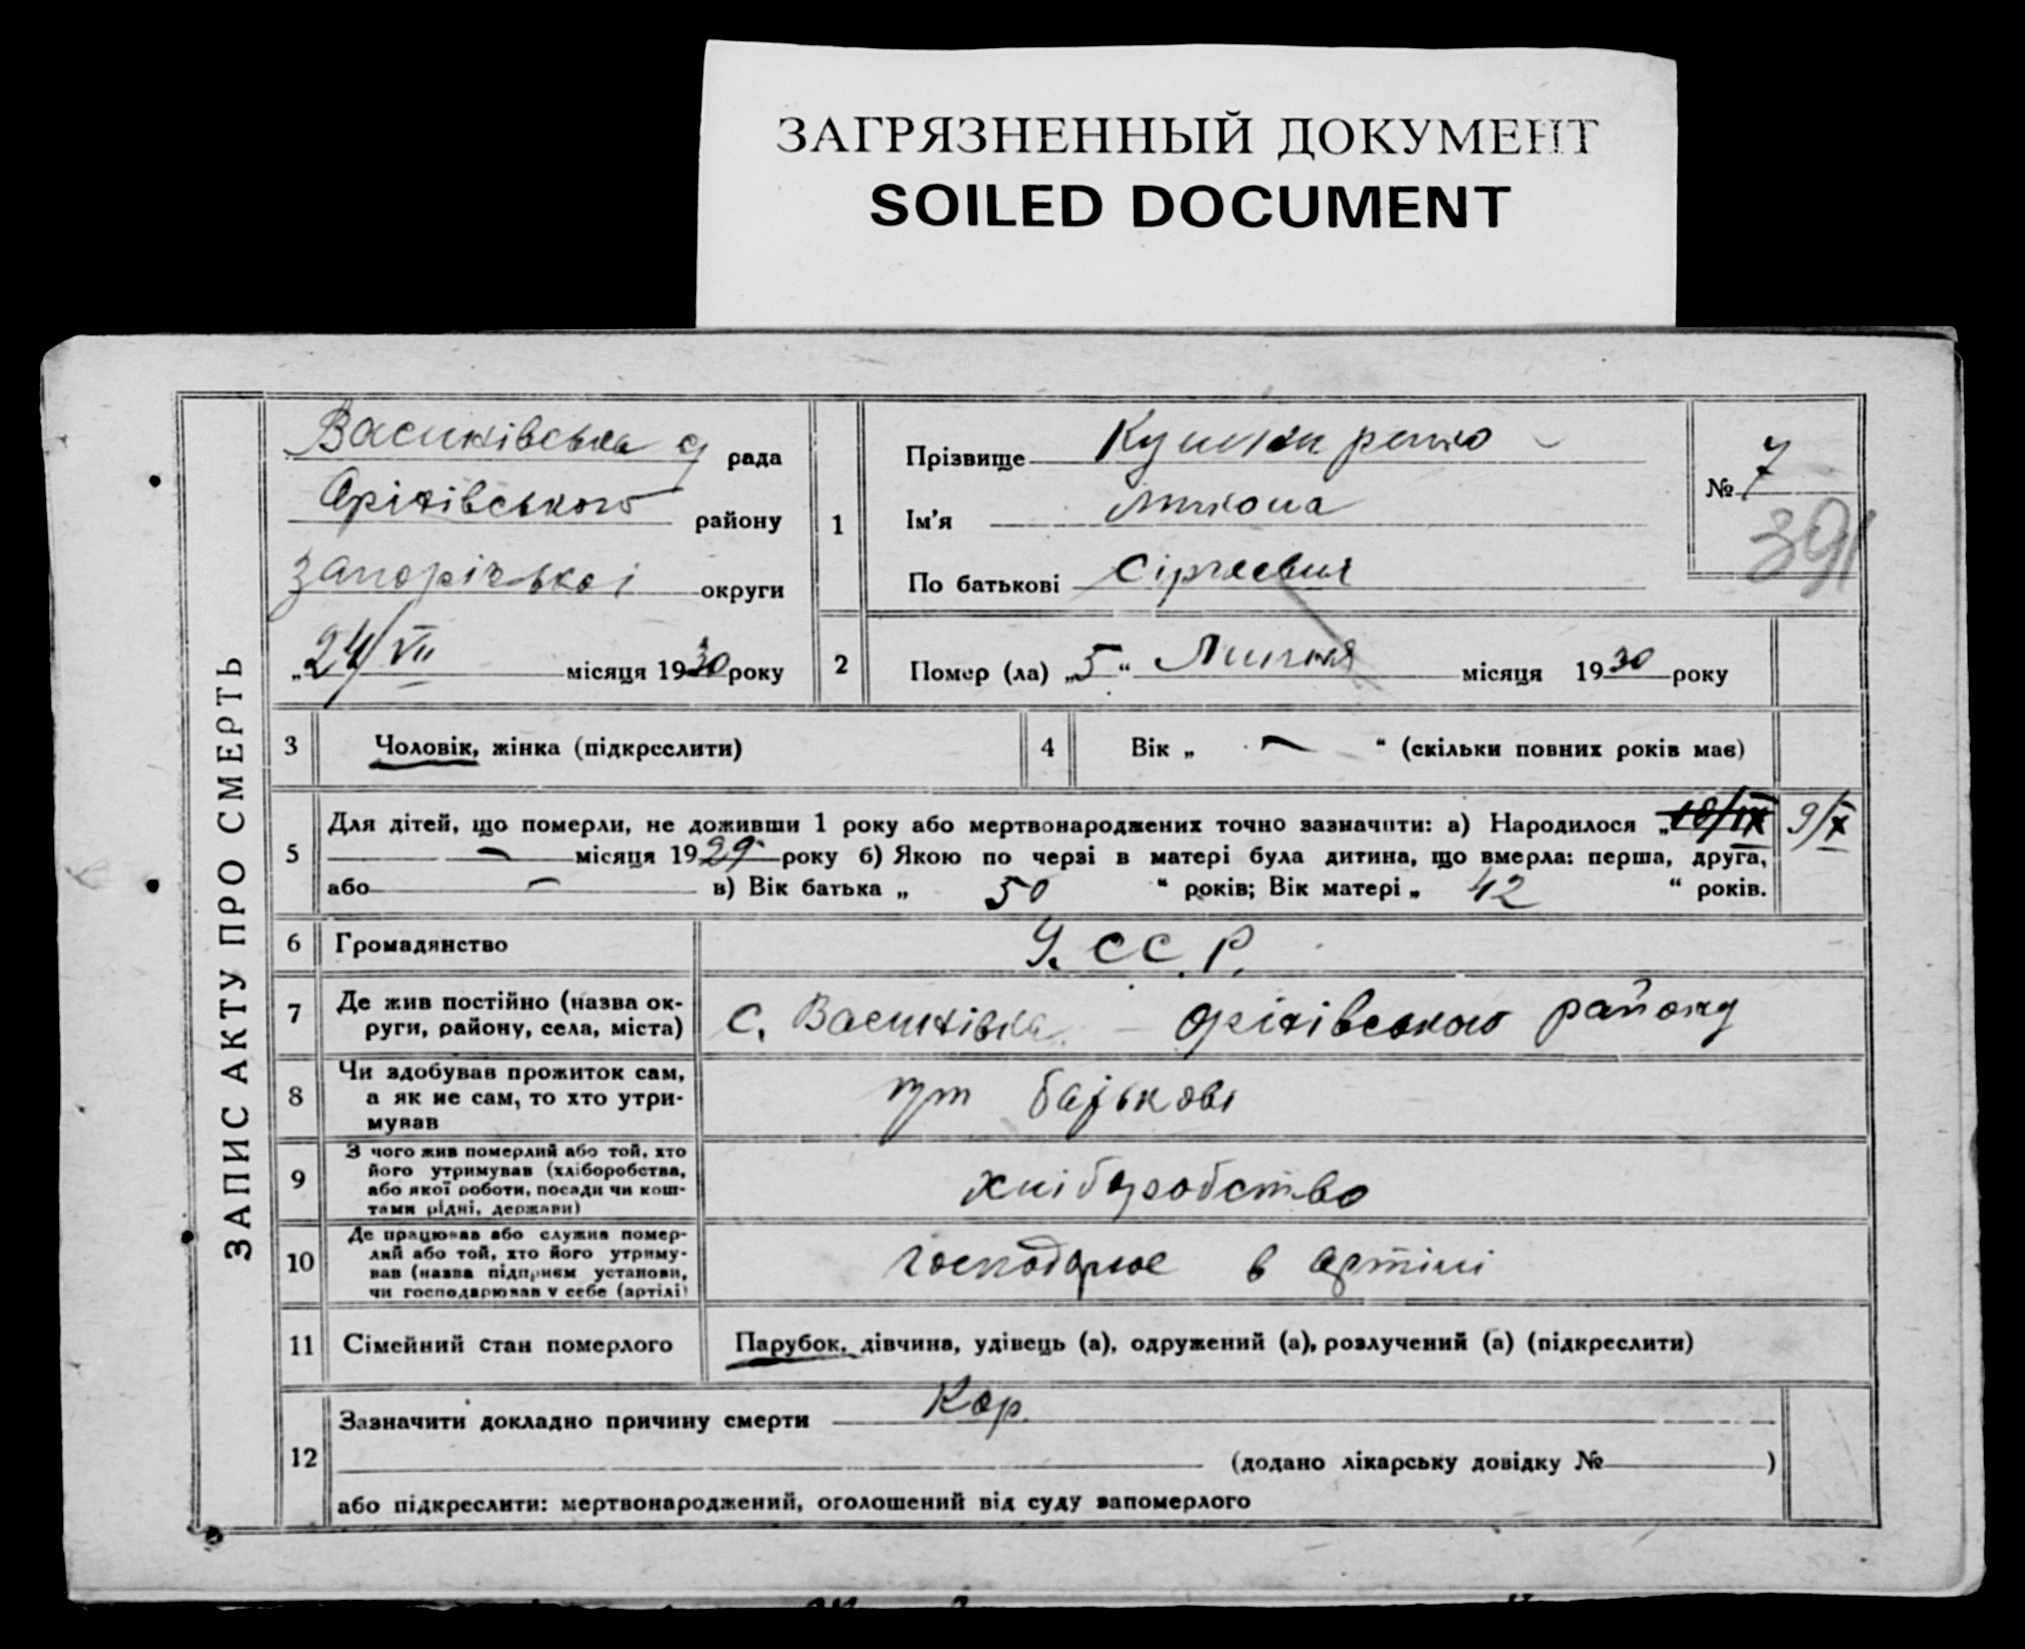 ЗАГРЯЗНЕННЫЙ ДОКУМЕНТ
SOILED DOCUMENT
ЗАПИС АКТУ ПРО СМЕРТЬ
рада
району
Запорізької округи
„24/VII місяця 1930 року
1
Прізвище
Ім'я Микола
По батькові
№ 7
391
2
Помер (ла) „5“ Липня місяця 1930 року
3
Чоловік, жінка (підкреслити)
4
Вік „ — “ (скільки повних років має)
5
Для дітей, що померли, не доживши 1 року або мертвонароджених точно зазначити: а) Народилося „18/IX 9/X
— місяця 1929 року б) Якою по черзі в матері була дитина, що вмерла: перша, друга,
або — в) Вік батька „ 50 “ років; Вік матері „ 42 “ років.
6
Громадянство У.ССР.
7
Де жив постійно (назва ок-
руги, району, села, міста)
с. Оріхівського району
8
Чи здобував прожиток сам,
а як не сам, то хто утри-
мував
при батькові
9
З чого жив померлий або той, хто
його утримував (хліборобства,
або якої роботи, посади чи кош-
тами рідні, держави)
хліборобство
10
Де працював або служив помер-
лий або той, хто його утриму-
вав (назва підприєм установи,
чи господарював у себе (артілі)
господарює в артілі
11
Сімейний стан померлого
Парубок, дівчина, удівець (а), одружений (а), розлучений (а) (підкреслити)
12
Зазначити докладно причину смерти Кор.
(додано лікарську довідку № )
або підкреслити: мертвонароджений, оголошений від суду запомерлого